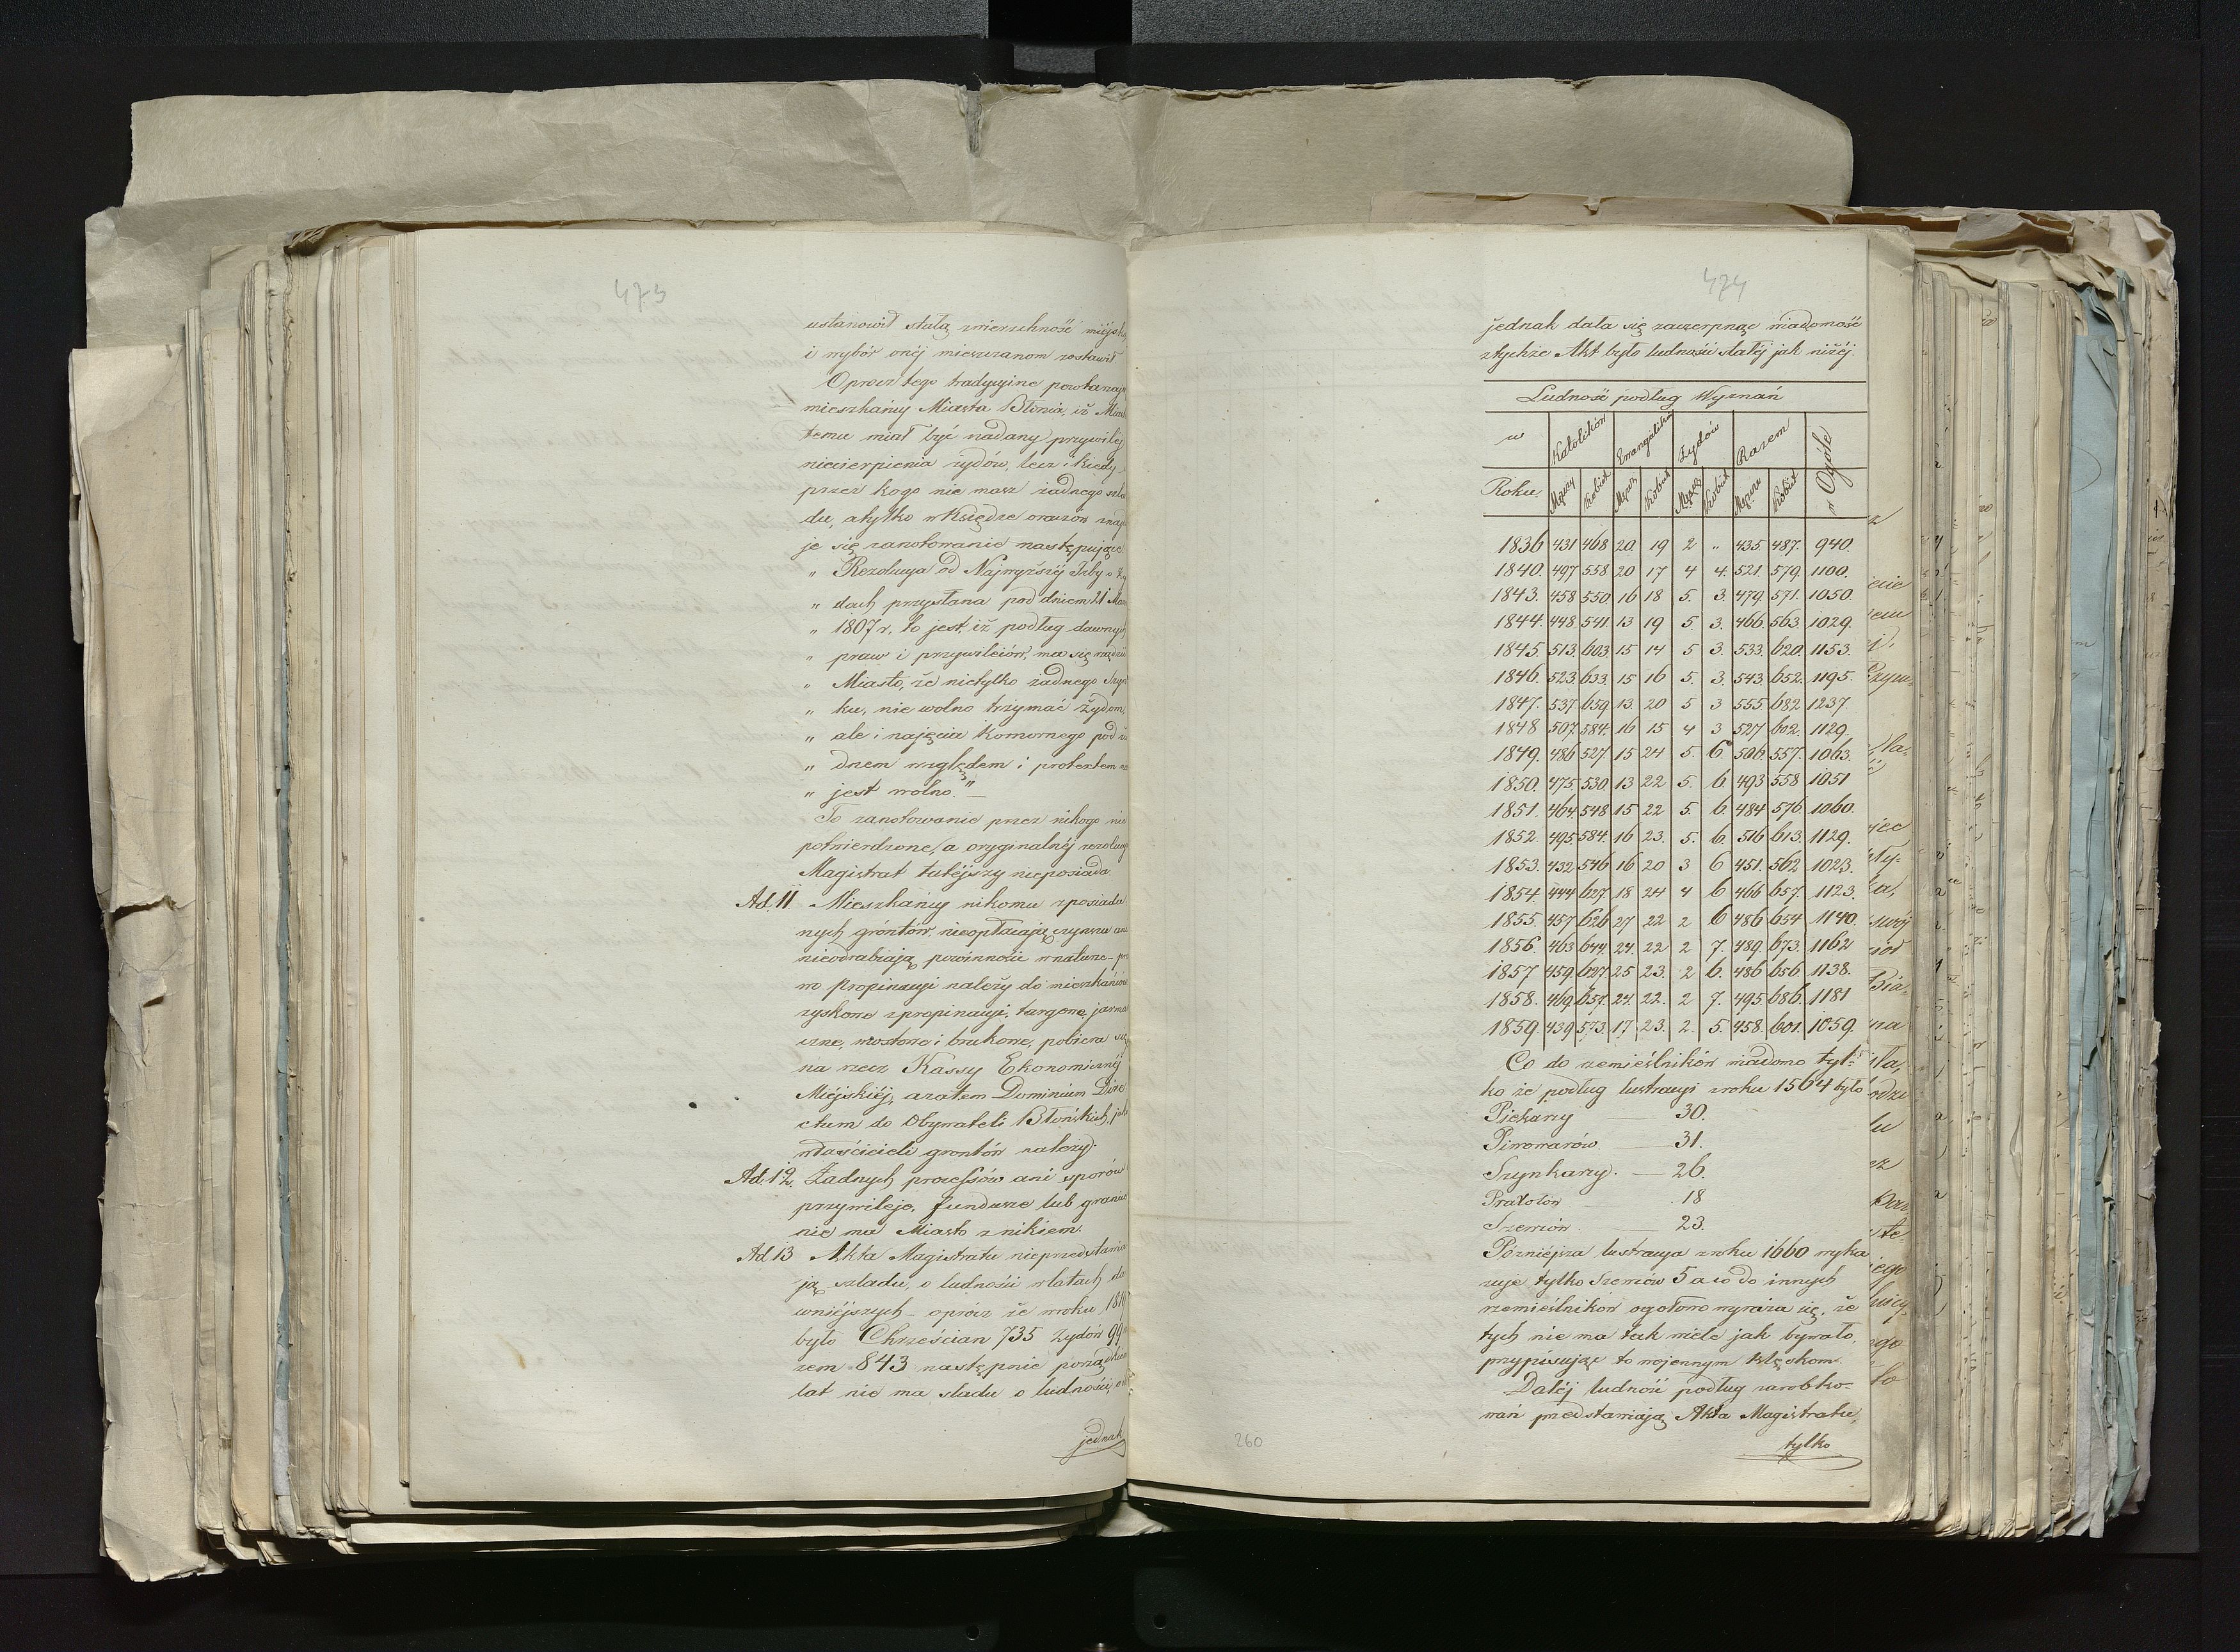 473
ustanowił stałą zwierzchność miéjsk
i wybór onéj mieszczanom zostawił
Oprócz tego tradycyjne powtarzają
mieszkańcy Miasta Błonia, iż Mias
temu miał być nadany przywiléj
niecierpienia żydów, lecz i kiedy
przez kogo nie masz żadnego szla
du, atylko w Księdze orazów znaj
je się zanotowanie następujące
„ Rezolucya od Najwyższéj Izby o ży
„ dach przysłana pod dniem 21 Mar
„ 1807 r. to jest, iż podług dawnych
„ praw i przywileiów, ma się rządzić
„ Miasto, że nietylko żadnego Szyn
„ ku, nie wolno trzymać żydom,
„ ale i najęcia Komornego pod ża
„ dnem względem i protextem nie
„ jest wolno." —
To zanotowanie przez nikogo nie
potwierdzone, a oryginalnéj rezolucy
Magistrat tutéjszy nieposiada.
Ad. 11. Mieszkańcy nikomu zposiada
nych gróntów, nieopłacają czynszu ani
nieodrabiają powinności w naturze – pra
wo propinacyi należy do mieszkańców
zyskowe zpropinacyi, targowe, jarma
czne, mostowe i brukowe, pobiera się
na rzecz Kassy Ekonomicznéj
Miéjskiéj, azatem Dominium Dire
ctum do Obywateli Błońskich, jako
właścicieli grontów należy.
Ad. 12. Żadnych processów ani sporów
przywileje, fundusze lub granice
nie ma Miasto z nikiem.
Ad. 13 Akta Magistratu nieprzedstawia
ją szladu, o ludności w latach da
wniéjszych – oprócz że w roku 181
było Chrześcian 735 Żydów 99
zem 843 następnie
lat nie ma sladu o ludności, o
jednak
474
jednak dała się zaczerpnąc wiadomość
ztychże Akt było ludności stałéj jak niżéj.
Ludność podług Wyznań
w Katolików Ewangelików Żydów Razem w Ogóle
Roku. Męzcz Kobiet Męzcz Kobiet Męzcz Kobiet Męzcz Kobiet
1836 431 468 20. 19 2 „ 435. 487. 940.
1840. 497 558 20 17 4 4. 521. 579. 1100.
1843. 458 550. 16 18 5. 3. 479. 571. 1050.
1844. 448 541. 13 19 5. 3. 466. 563. 1029.
1845. 513. 603. 15 14 5 3. 533. 620. 1153.
1846. 523. 633. 15 16 5. 3. 543. 652. 1195.
1847. 537. 659. 13. 20 5 3 555. 682 1237
1848 507. 584. 16 15 4 3 527 602. 1129.
1849. 486 527. 15 24 5. 6 506. 557. 1063.
1850. 475. 530. 13 22 5. 6. 493 558 1051
1851. 464. 548 15 22 5. 6. 484 576. 1060.
1852. 495. 584. 16 23. 5. 6. 516 613. 1129.
1853. 432 546 16 20 3 6 451. 562 1023.
1854. 444 627. 18 24 4 6 466 657. 1123.
1855. 457 626 27 22 2 6 486 654 1140.
1856. 463 644. 24. 22 2 7. 489. 673. 1162
1857 459. 627. 25 23. 2 6. 486 656. 1138.
1858. 469. 657. 24. 22. 2 7. 495. 686. 1181
1859 439 573. 17 23. 2. 5. 458. 601. 1059.
Co do rzemieślników wiadomo tyl-
ko że podług lustracyi zroku 1564 było
Piekarzy 30.
Piwowarów 31.
Szynkarzy. 26.
Prałotów 18
Szewców 23.
Pózniéjsza lustracya zroku 1660 wyka
zuje tylko Szewców 5 a co do innych
rzemieślników ogołowo wyraża się, że
tych nie ma tak wiele jak bywało,
przypisując to wojennym klęskom.
Daléj ludność podług zarobko-
wań przedstawiają Akta Magistratu,
tylko
260